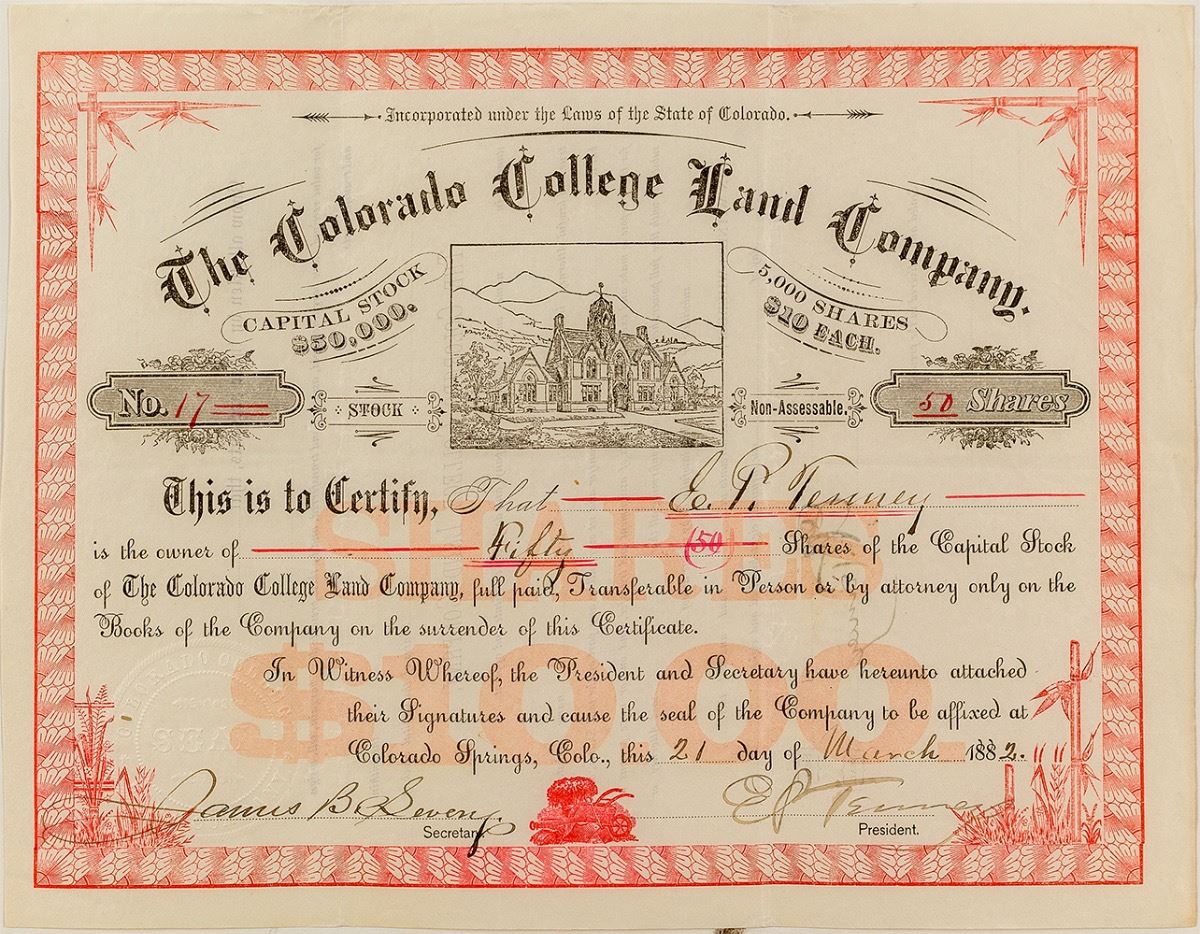 Incorporated under the Laws of the State of Colorado.
The Colorado College Land Company.
CAPITAL STOCK
$50,000.
5,000 SHARES
$10 EACH.
No. 17
STOCK
Non-Assessable.
50 Shares
This is to Certify, That E. P. Tenney
is the owner of Fifty (50) Shares of the Capital Stock
of The Colorado College Land Company, full paid, Transferable in Person or by attorney only on the
Books of the Company on the surrender of this Certificate.
SHARES
$10.00
In Witness Whereof, the President and Secretary have hereunto attached
their Signatures and cause the seal of the Company to be affixed at
Colorado Springs, Colo., this 21 day of March 1882.
James B. Severy.
Secretary
E P Tenney
President.